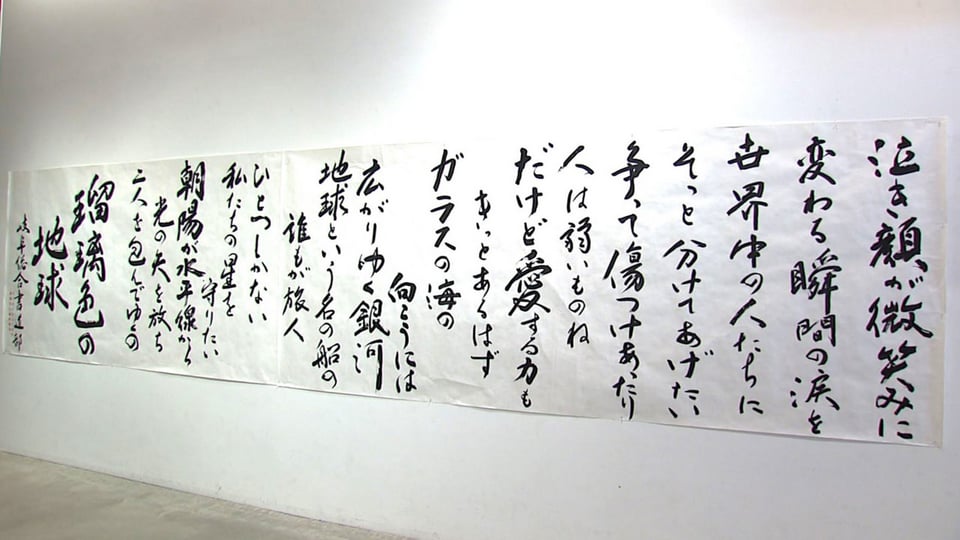 泣き顔が微笑みに
変わる瞬間の涙を
世界中の人たちに
そっと分けてあげたい
争って傷つけあったり
人は弱いものね
だけど愛する力も
きっとあるはず
ガラスの海の
向こうには
広がりゆく銀河
地球という名の船の
誰もが旅人
ひとつしかない
私たちの星を
守りたい
朝陽が水平線から
光の矢を放ち
二人を包んでゆくの
瑠璃色の
地球
岐阜総合書道部